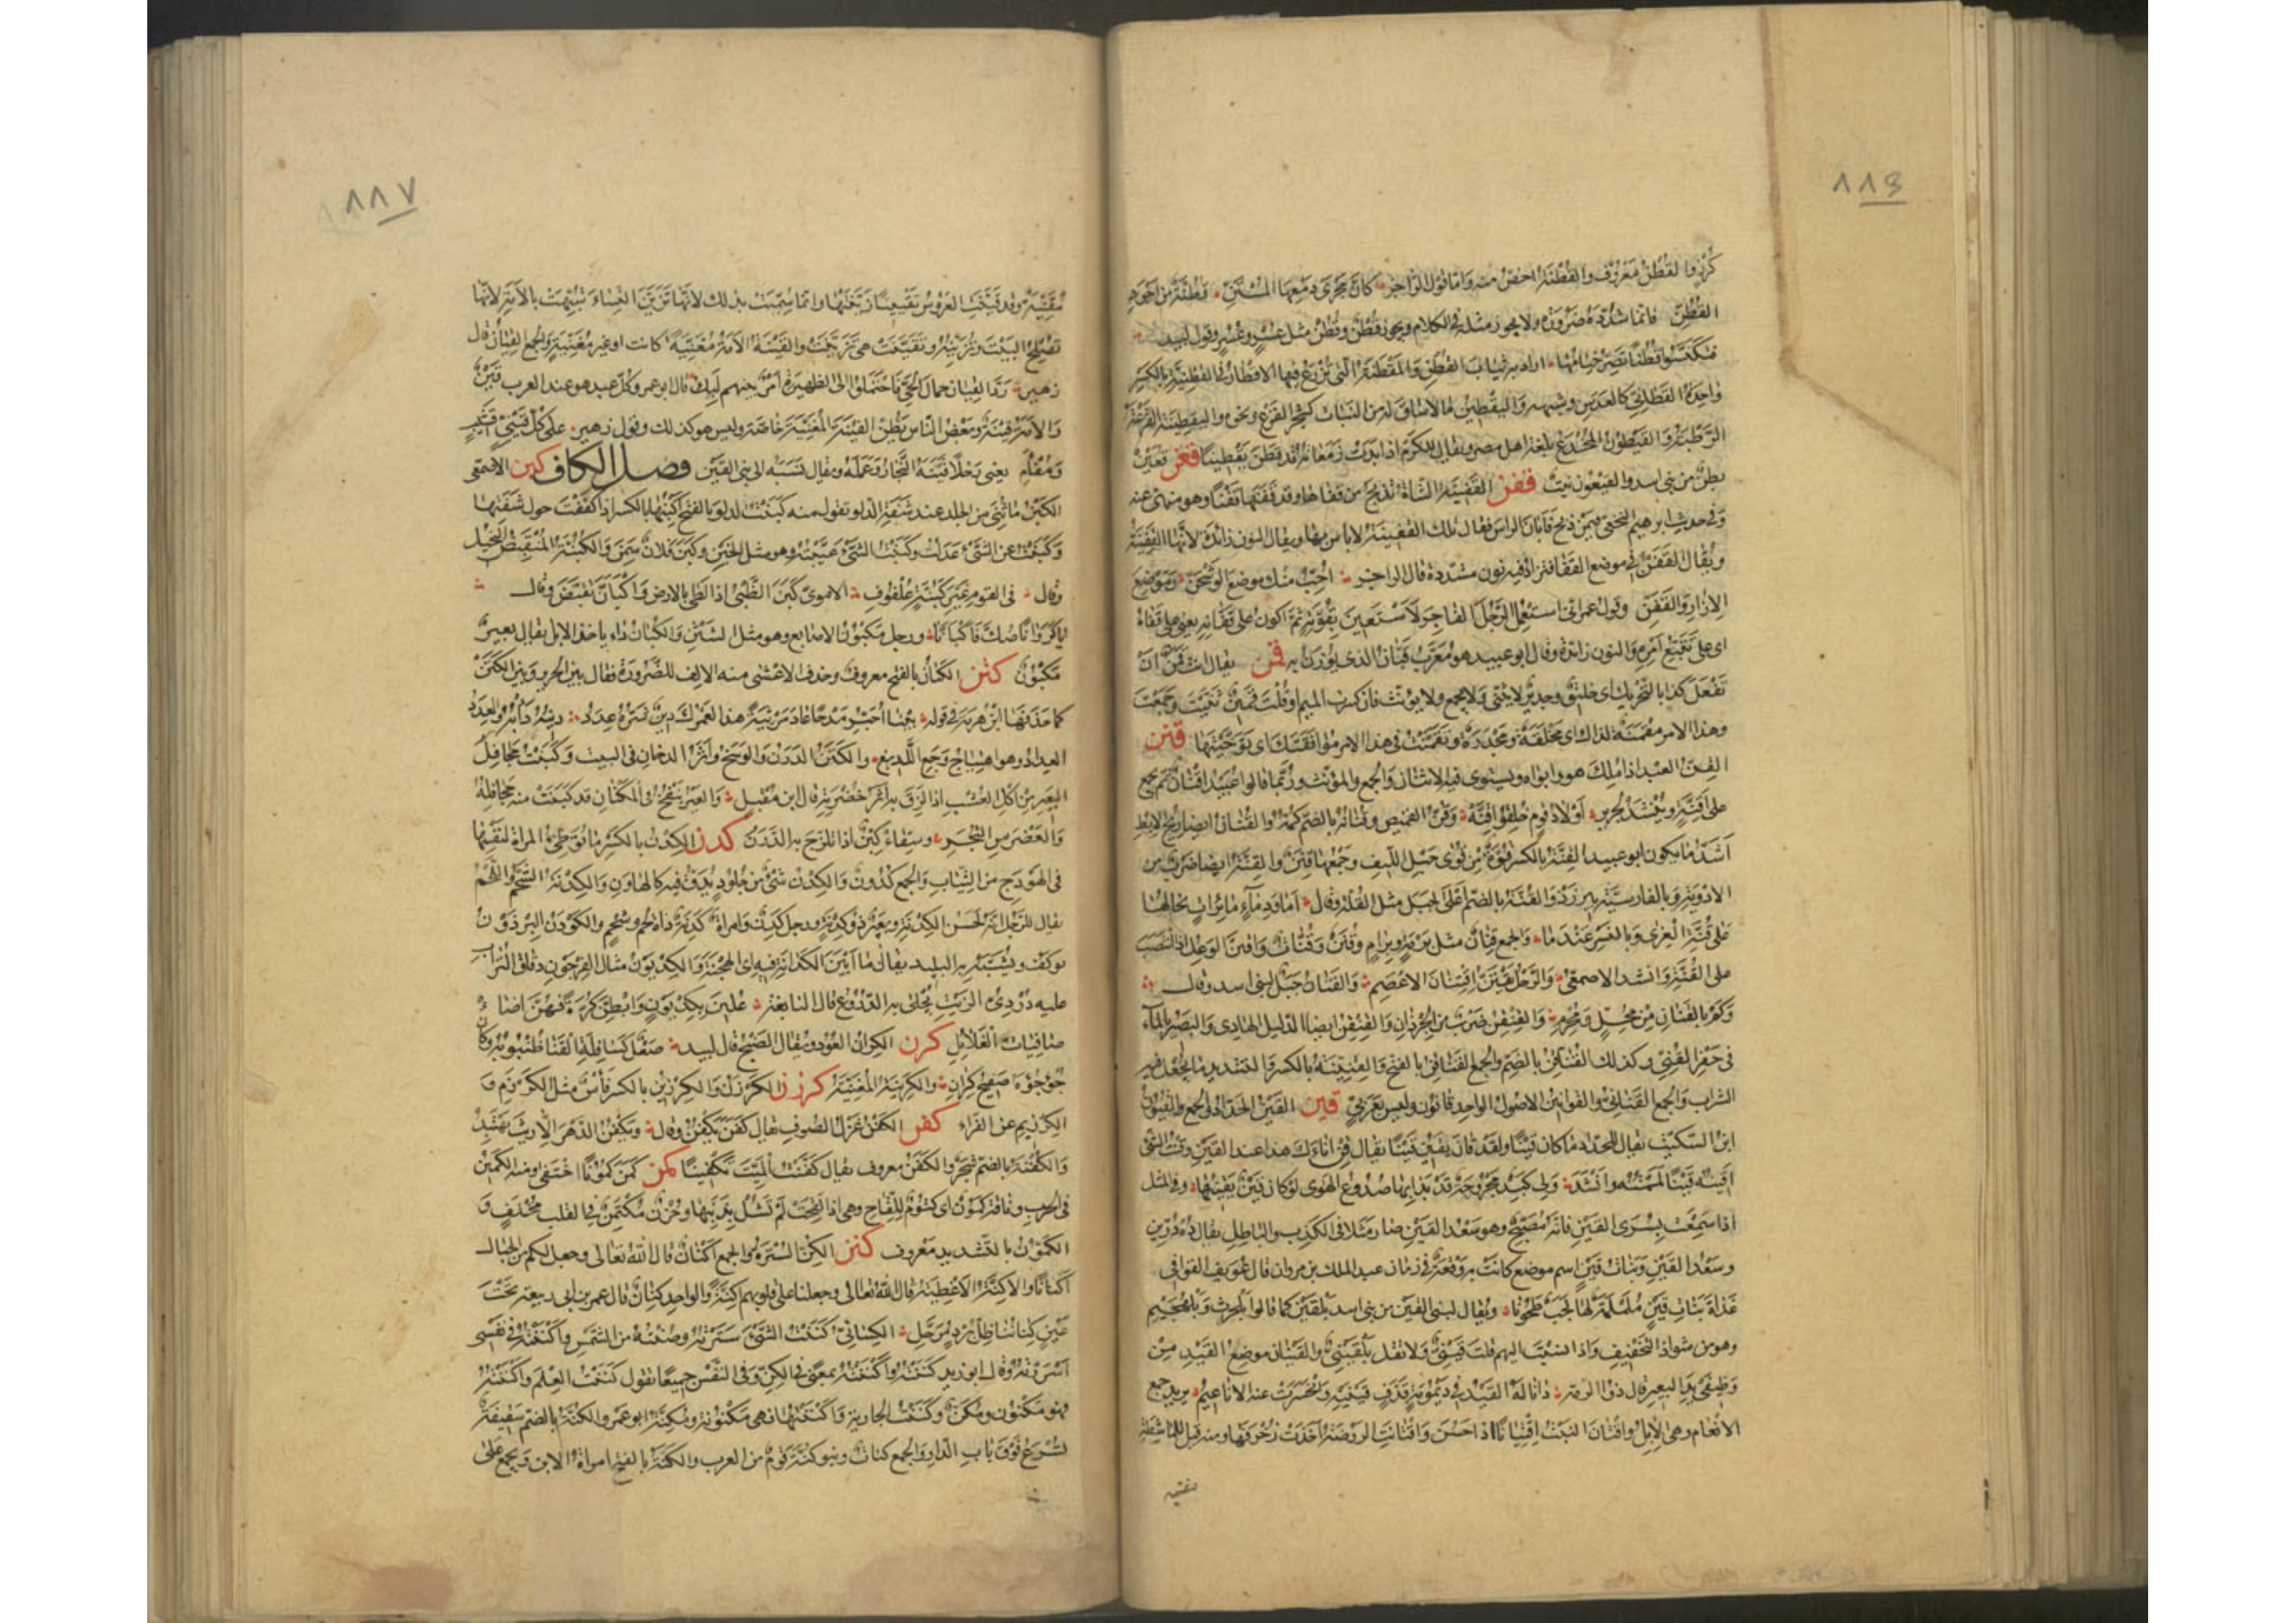 ٨٨٦
كرزوا لقطن معروف والقطنة اخص منه واما قول الراجز كان مجرى دمعها المستن قطنة من اجود
القطن فانما شدده ضرورة ولا يجوز مثله في الكلام ويجوز قطن وقطن مثل عسر وعسر وقول لبيد
فتكنسوا قطنا تصر خيامها اراد به ثياب القطن والمقطنة التي تزرع فيها الاقطان والقطنية بالكسر
واحدة القطاني كالعدس وشبهه واليقطين ما لا ساق له من النبات كشجر القرع ونحوه واليقطينة القرعة
الرطبة والقيطون المخدع بلغة اهل مصر ويقال للكرم اذا بدت زمعاته قد قطن تقطينا قعن قعين
بطن من بني اسد والقيعون نبت قفن القفينة الشاة تذبح من قفاها وقد قفنها قفنا وهو منهي عنه
وفي حديث ابرهيم النخعي فيمن ذبح فابان الراس فقال تلك القفينة لا باس بها ويقال النون زائدة لانها القفية
ويقال القفن في موضع القفا فتزاد فيه نون مشددة قال الراجز احب منك موضع الوشحن وموضع
الازار والقفن وقول عمر اني استعمل الرجل الفاجر لاستعين بقوته ثم اكون على قفانه يعني على قفاه
اي على تتبع امره والنون زائدة وقال ابو عبيد هو معرب قبان الذي يوزن به قمن يقال انت قمن ان
تفعل كذا بالتحريك اي خليق وجدير لا يثنى ولا يجمع ولا يؤنث فان كسرت الميم او قلت قمين ثنيت وجمعت
وهذا الامر مقمنة لذاك اي مخلقة ومجدرة وتقمنت في هذا الامر موافقتك اي توخيتها قنن
القن العبد اذا ملك هو وابواه ويستوي فيه الاثنان والجمع والمؤنث وربما قالوا عبيد اقنان ثم يجمع
على اقنة وينشد لجرير اولاد قوم خلقوا اقنة وقن القميص وقنانه بالضم كمه والقنان ايضا ريح الابط
اشد ما يكون ابو عبيد القنة بالكسر قوة من قوى حبل الليف وجمعها قنن والقنة ايضا ضرب من
الادوية وبالفارسية بيرزد والقنة بالضم اعلى الجبل مثل القلة وقال اما ودماء مائرات تخالها
على قنة العزى وبالنسر عندما والجمع قنان مثل برمة وبرام وقنن وقنات واقتن الوعل اذا انتصب
على القنة وانشد الاصمعي والرحل يقتن اقتنان الاعصم والقنان جبل لبني اسد وقال
وكم بالقنان من محل ومحرم والقنقن ضرب من الجرذان والقنقن ايضا الدليل الهادي والبصير بالماء
في حفر القني وكذلك القناقن بالضم والجمع القناقن بالفتح والقنينة بالكسر والتشديد ما يجعل فيه
الشراب والجمع القناني والقوانين الاصول الواحد قانون وليس بعربي قين القين الحداد والجمع القيون
ابن السكيت يقال للحداد ما كان قينا ولقد قان يقين قينا يقال قن اناءك هذا عند القين وقنت الشئ
اقينه قينا لممته وانشد ولي كبد مجروحة قد بدا بها صدوع الهوى لو كان قين يقينها وفي المثل
اذا سمعت بسرى القين فانه مصبح وهو سعد القين صار مثلا في الكذب والباطل يقال ده درين
وسعد القين وبنات قين اسم موضع كانت به وقعة في زمان عبد الملك بن مروان قال عويف القوافي
غداة بنات قين ململمة لها لجب طحونا ويقال لبني القين من بني اسد بلقين كما قالوا بلحرث وبلهجيم
وهو من شواذ التخفيف واذا نسبت اليهم قلت قيني ولا تقل بلقيني والقينان موضع القيد من
وظيفي يد البعير قال ذو الرمة دانا له القيد في ديمومة قذف قينيه وانحسرت عنه الاناعيم يريد جمع
الانعام وهي الابل واقتان النبت اقتيانا اذا حسن واقتانت الروضة اخذت زخرفها ومنه قيل للماشطة
مقينة
٨٨٧
مقينة وقد قينت العروس تقيينا زينتها وانما سميت بذلك لانها تزين النساء شبهت بالامة لانها
تصلح البيت وتزينه وتقينت هي تزينت والقينة الامة مغنية كانت او غير مغنية والجمع القيان قال
زهير رد القيان جمال الحي فاحتملوا الى الظهيرة امر بينهم لبك قال ابو عمر وكل عبد هو عند العرب قين
والامة قينة وبعض الناس يظن القينة المغنية خاصة وليس هو كذلك وقول زهير على كل قيني قشيب
ومفأم يعني رحلا قينه النجار وعمله ويقال نسبه الى بني القين فصل الكاف كبن الاصمعي
الكبن ما ثني من الجلد عند شفة الدلو تقول منه كبنت الدلو بالفتح اكبنها بالكسر اذا كففت حول شفتها
وكبنت عن الشئ عدلت وكبنت الشئ غيبته وهو مثل الخبن وكبن فلان سمن والكبنة المنقبض البخيل
وقال في القوم غير كبنة علفوف الاموي كبن الظبي اذا لطئ بالارض واكبان تقبض وقال
يا كروانا صك فاكبانا ورجل مكبون الاصابع وهو مثل الشثن والكبان داء ياخذ الابل يقال بعير
مكبون كتن الكتان بالفتح معروف وحذف الاعشى منه الالف للضرورة فقال بين الحرير وبين الكتن
كما حذفها ابن هرمة في قوله بينا احبر مدحا عاد مرثية هذا لعمرك دين غيره عدد دينه دابه والعدد
العداد وهو اهتياج وجع اللديغ والكتن الدرن والوسخ واثر الدخان في البيت وكتنت جحافل
البعير من اكل العشب اذا لزق به اثر خضرته قال ابن مقبل والعير ينفخ في المكنان قد كتنت منه جحافله
والعضرس الثجر وسقاء كتن اذا تلزج به الدرن كدن الكدن بالكسر ما توطئ المراة لنفسها
في الهودج من الثياب والجمع كدون والكدن شئ من جلود يدق فيه كالهاون والكدنة الشحم واللحم
يقال للرجل انه لحسن الكدنة وبعير ذو كدنة ورجل كدن وامراة كدنة ذات لحم وشحم والكودن البرذون
يوكف ويشبه به البليد يقال ما ابين الكدانة فيه اي الهجنة والكديون مثال الفرجون دقاق التراب
عليه دردي الزيت تجلى به الدروع قال النابغة علين بكديون وابطن كرة فهن اضاء
صافيات الغلائل كرن الكران العود ويقال الصنج قال لبيد صعل كسافلة القناة ظنبوبه وكان
جؤجؤه صفيح كران والكرينة المغنية كرزن الكرزن والكرزين بالكسر فأس مثل الكرزم و
الكرزيم عن الفراء كفن الكفن غزل الصوف يقال كفن يكفن وقال ويكفن الدهر الا ريث يهتبد
والكفنة بالضم شجر والكفن معروف يقال كفنت الميت تكفينا كمن كمن كمونا اختفى ومنه الكمين
في الحرب وناقة كمون اي كتوم للقاح وهي اذا لقحت لم تشل بذنبها وحزن مكتمن في القلب مختف و
الكمون بالتشديد معروف كنن الكن السترة والجمع اكنان قال الله تعالى وجعل لكم من الجبال
اكنانا والاكنة الاغطية قال الله تعالى وجعلنا على قلوبهم اكنة والواحد كنان قال عمر بن ابي ربيعة تحت
عين كناننا ظل برد مرحل الكسائي كننت الشئ سترته وصنته من الشمس واكننته في نفسي
اسررته وقال ابو زيد كننته واكننته بمعنى في الكن وفي النفس جميعا تقول كننت العلم واكننته
فهو مكنون ومكن وكننت الجارية واكننتها فهي مكنونة ومكنة ابو عمر والكنة بالضم سقيفة
تشرع فوق باب الدار والجمع كنات وبنو كنة قوم من العرب والكنة بالفتح امراة الابن ويجمع على